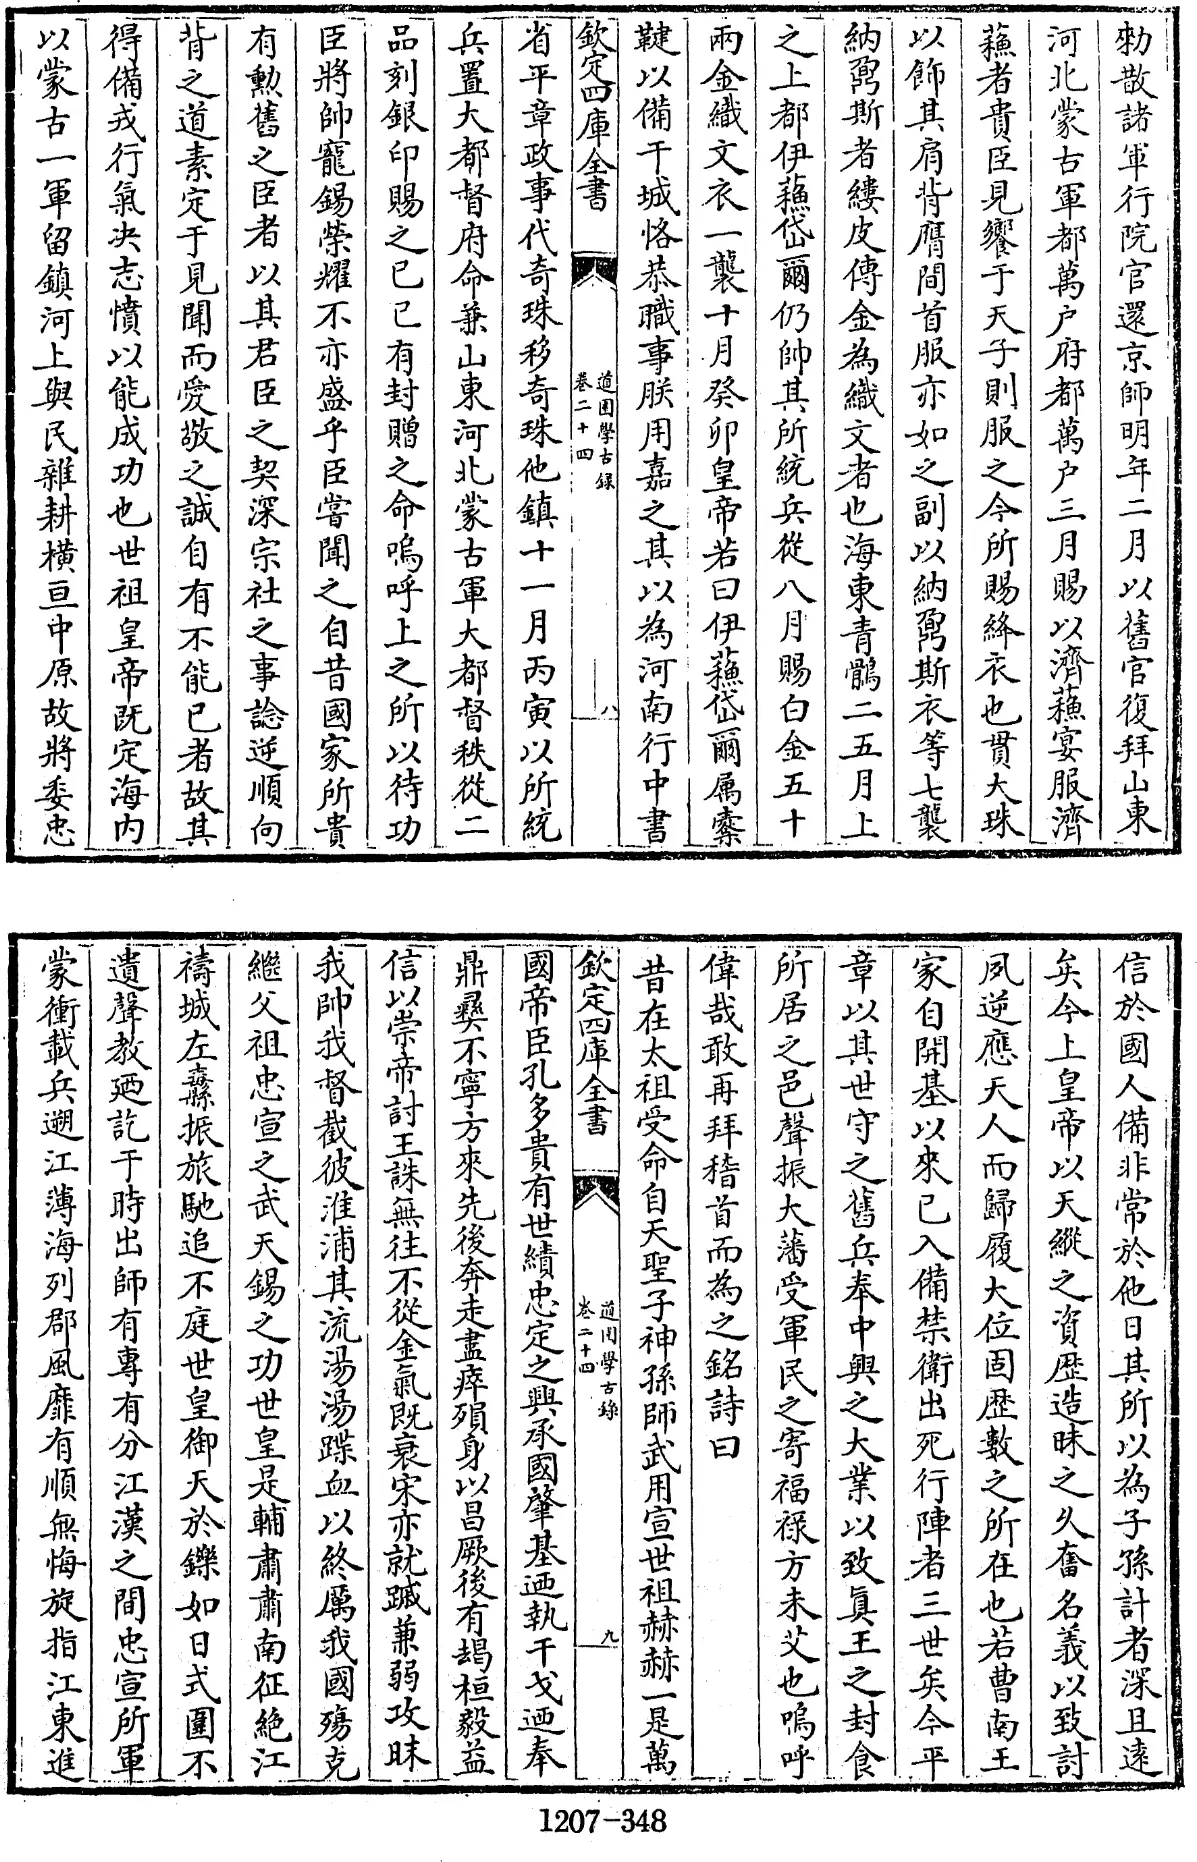 勑散諸軍行院官還京師明年二月以舊官復拜山東
河北蒙古軍都萬戶府都萬戶三月賜以濟蘓宴服濟
蘓者貴臣見饗于天子則服之今所賜絳衣也貫大珠
以飾其肩背膺間首服亦如之副以納鬴斯衣等七襲
納鬴斯者縷皮傳金為織文者也海東青鶻二五月上
之上都伊蘓岱爾仍帥其所統兵從八月賜白金五十
兩金織文衣一襲十月癸卯皇帝若曰伊蘓岱爾属櫜
鞬以備干城恪恭職事朕用嘉之其以為河南行中書
欽定四庫全書
道園學古録
卷二十四
八
省平章政事代奇珠移奇珠他鎮十一月丙寅以所統
兵置大都督府命兼山東河北蒙古軍大都督秩從二
品刻銀印賜之已已有封贈之命嗚呼上之所以待功
臣將帥寵錫榮耀不亦盛乎臣嘗聞之自昔國家所貴
有勲舊之臣者以其君臣之契深宗社之事諗逆順向
背之道素定于見聞而愛敬之誠自有不能已者故其
得備戎行氣决志憤以能成功也世祖皇帝既定海内
以蒙古一軍留鎮河上與民雜耕横亘中原故將委忠
信於國人備非常於他日其所以為子孫計者深且逺
矣今上皇帝以天縱之資歴造昧之乆奮名義以致討
夙逆應天人而歸履大位固歴數之所在也若曹南王
家自開基以來已入備禁衛出死行陣者三世矣今平
章以其世守之舊兵奉中興之大業以致真王之封食
所居之邑聲振大藩受軍民之寄福禄方未艾也嗚呼
偉哉敢再拜稽首而為之銘詩曰
昔在太祖受命自天聖子神孫師武用宣世祖赫赫一是萬
欽定四庫全書
道園學古録
卷二十四
九
國帝臣孔多貴有世績忠定之興承國肇基迺執干戈迺奉
鼎彛不寧方來先後奔走盡瘁殞身以昌厥後有朅桓毅益
信以崇帝討王誅無往不從金氣既衰宋亦就㦧兼弱攻昧
我帥我督截彼淮浦其流湯湯蹀血以終厲我國殤克
繼父祖忠宣之武天錫之功世皇是輔肅肅南征絶江
禱城左纛振旅馳追不庭世皇御天於鑠如日式圍不
遺聲教廼訖于時出師有專有分江漢之間忠宣所軍
蒙衝載兵遡江薄海列郡風靡有順無悔旋指江東進
1207-348